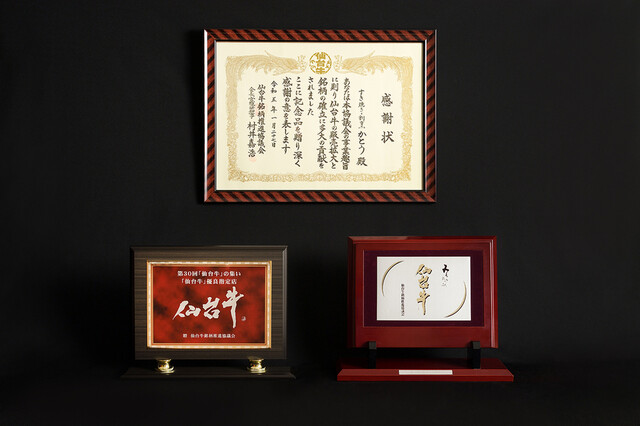 仙台牛
感謝状
すき焼き・割烹 かとう 殿
あなたは本協議会の事業趣旨
に則り仙台牛の販売拡大と
銘柄の確立に多大の貢献を
されました
ここに記念品を贈り深く
感謝の意を表します
令和五年一月二十七日
仙台牛銘柄推進協議会
村井嘉浩
第30回「仙台牛」の集い
「仙台牛」優良指定店
仙台牛
贈 仙台牛銘柄推進協議会
仙台牛
仙台牛銘柄推進協議会